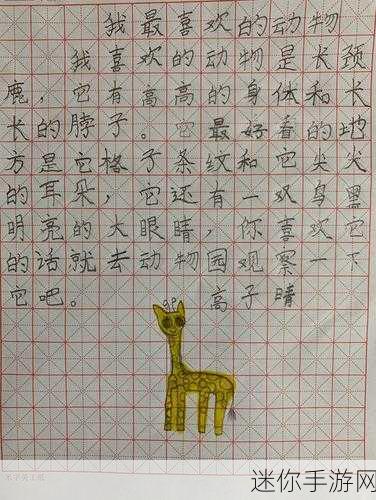 我最喜欢的动物
我喜欢的动物是长颈
鹿，它有高高的身体和长
长的脖子。它最好看的地
方是它格子条纹和它尖尖
的耳朵，它还有一双乌黑
明亮的大眼睛，你喜欢它
的话就去动物园观察一下
它吧。 高子晴
迷你手游网